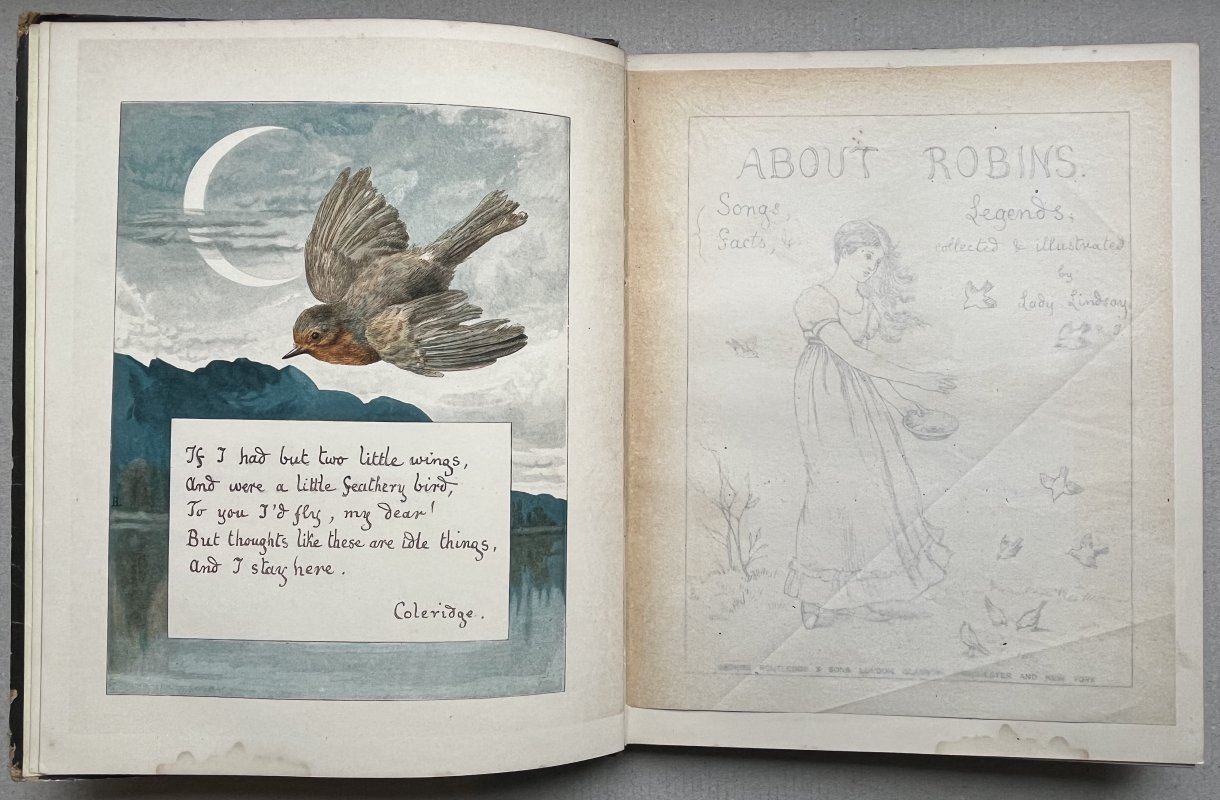 If I had but two little wings,
And were a little feathery bird,
To you I'd fly, my dear!
But thoughts like these are idle things,
And I stay here.
Coleridge.
ABOUT ROBINS.
Songs, Legends,
Facts, &
collected & illustrated
by
Lady Lindsay
GEORGE ROUTLEDGE & SONS LONDON GLASGOW MANCHESTER AND NEW YORK